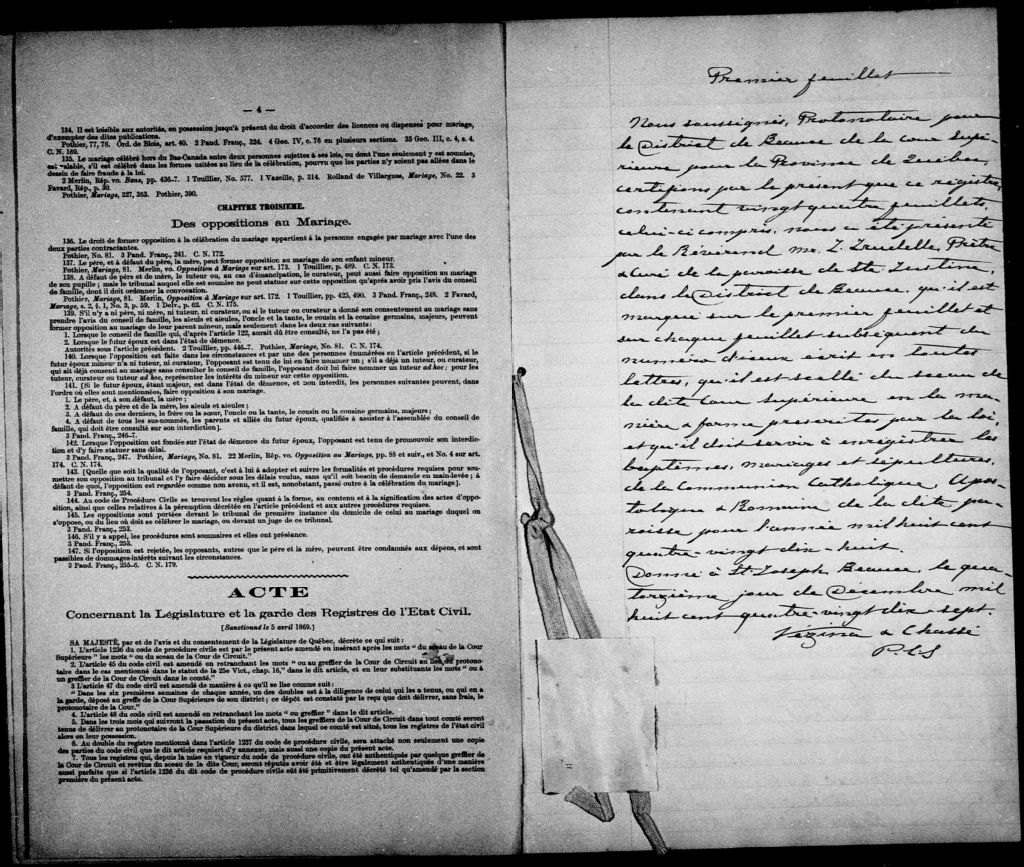 — 4 —
134. Il est loisible aux autorités, en possession jusqu'à présent du droit d'accorder des licences ou dispenses pour mariage,
d'exempter des dites publications.
Pothier, 77, 78. Ord. de Blois, art. 40. 2 Pand. Franç., 324. 4 Geo. IV, c. 76 en plusieurs sections. 35 Geo. III, c. 4, s. 4.
C. N. 169.
135. Le mariage célébré hors du Bas-Canada entre deux personnes sujettes à ses lois, ou dont l'une seulement y est soumise,
est valable, s'il est célébré dans les formes usitées au lieu de la célébration, pourvu que les parties n'y soient pas allées dans le
dessein de faire fraude à la loi.
2 Merlin, Rép. vo. Bans, pp. 436-7. 1 Touillier, No. 577. 1 Vazeille, p. 314. Rolland de Villargues, Mariage, No. 22. 3
Favard, Rép., p. 50.
Pothier, Mariage, 327, 363. Pothier, 390.
CHAPITRE TROISIEME.
Des oppositions au Mariage.
136. Le droit de former opposition à la célébration du mariage appartient à la personne engagée par mariage avec l'une des
deux parties contractantes.
Pothier, No. 81. 3 Pand. Franç., 241. C. N. 172.
137. Le père, et à défaut du père, la mère, peut former opposition au mariage de son enfant mineur.
Pothier, Mariage, 81. Merlin, vo. Opposition à Mariage sur art. 173. 1 Touillier, p. 489. C. N. 173.
138. A défaut de père et de mère, le tuteur ou, au cas d'émancipation, le curateur, peut aussi faire opposition au mariage
de son pupille ; mais le tribunal auquel elle est soumise ne peut statuer sur cette opposition qu'après avoir pris l'avis du conseil
de famille, dont il doit ordonner la convocation.
Pothier, Mariage, 81. Merlin, Opposition à Mariage sur art. 172. 1 Touillier, pp. 425, 490. 3 Pand. Franç., 248. 2 Favard,
Mariage, s. 2, §. 1, No. 3, p. 59. 1 Delv., p. 62. C. N. 175.
139. S'il n'y a ni père, ni mère, ni tuteur, ni curateur, ou si le tuteur ou curateur a donné son consentement au mariage sans
prendre l'avis du conseil de famille, les aïeuls et aïeules, l'oncle et la tante, le cousin et la cousine germains, majeurs, peuvent
former opposition au mariage de leur parent mineur, mais seulement dans les deux cas suivants :
1. Lorsque le conseil de famille qui, d'après l'article 122, aurait dû être consulté, ne l'a pas été ;
2. Lorsque le futur époux est dans l'état de démence.
Autorités sous l'article précédent. 2 Touillier, pp. 446-7. Pothier, Mariage, No. 81. C. N. 174.
140. Lorsque l'opposition est faite dans les circonstances et par une des personnes énumérées en l'article précédent, si le
futur époux mineur n'a ni tuteur, ni curateur, l'opposant est tenu de lui en faire nommer un ; s'il a déjà un tuteur, ou curateur,
qui ait déjà consenti au mariage sans consulter le conseil de famille, l'opposant doit lui faire nommer un tuteur ad hoc ; pour les
tuteur, curateur ou tuteur ad hoc, représenter les intérêts du mineur sur cette opposition.
141. [Si le futur époux, étant majeur, est dans l'état de démence, et non interdit, les personnes suivantes peuvent, dans
l'ordre où elles sont mentionnées, faire opposition à son mariage.
1. Le père, et, à son défaut, la mère ;
2. A défaut du père et de la mère, les aïeuls et aïeules ;
3. A défaut de ces derniers, le frère ou la sœur, l'oncle ou la tante, le cousin ou la cousine germains, majeurs ;
4. A défaut de tous les sus-nommés, les parents et alliés du futur époux, qualifiés à assister à l'assemblée du conseil de
famille, qui doit être consulté sur son interdiction].
3 Pand. Franç., 246-7.
142. Lorsque l'opposition est fondée sur l'état de démence du futur époux, l'opposant est tenu de promouvoir son interdic-
tion et d'y faire statuer sans délai.
3 Pand. Franç., 247. Pothier, Mariage, No. 81. 22 Merlin, Rép. vo. Opposition au Mariage, pp. 88 et suiv., et No. 4 sur art.
174. C. N. 174.
143. [Quelque que soit la qualité de l'opposant, c'est à lui à adopter et suivre les formalités et procédures requises pour sou-
mettre son opposition au tribunal et l'y faire décider sous les délais voulus, sans qu'il soit besoin de demande en main-levée ; à
défaut de quoi, l'opposition est regardée comme non avenue, et il est, nonobstant, passé outre à la célébration du mariage].
3 Pand. Franç., 254.
144. Au code de Procédure Civile se trouvent les règles quant à la forme, au contenu et à la signification des actes d'oppo-
sition, ainsi que celles relatives à la péremption décrétée en l'article précédent et aux autres procédures requises.
145. Les oppositions sont portées devant le tribunal de première instance du domicile de celui au mariage duquel on
s'oppose, ou du lieu où doit se célébrer le mariage, ou devant un juge de ce tribunal.
3 Pand. Franç., 253.
146. S'il y a appel, les procédures sont sommaires et elles ont préséance.
3 Pand. Franç., 253.
147. Si l'opposition est rejetée, les opposants, autres que le père et la mère, peuvent être condamnés aux dépens, et sont
passibles de dommages-intérêts suivant les circonstances.
3 Pand. Franç., 255-6. C. N. 179.
ACTE
Concernant la Législature et la garde des Registres de l'Etat Civil.
[Sanctionné le 5 avril 1869.]
SA MAJESTÉ, par et de l'avis et du consentement de la Législature de Québec, décrète ce qui suit :
1. L'article 1236 du code de procédure civile est par le présent acte amendé en insérant après les mots "du sceau de la Cour
Supérieure" les mots "ou du sceau de la Cour de Circuit."
2. L'article 45 du code civil est amendé en retranchant les mots "ou au greffier de la Cour de Circuit au lieu du protono-
taire dans le cas mentionné dans le statut de la 25e Vict., chap. 16," dans le dit article, et en leur substituant les mots "ou à
un greffier de la Cour de Circuit dans le comté."
3 L'article 47 du code civil est amendé de manière à ce qu'il se lise comme suit :
" Dans les six premières semaines de chaque année, un des doubles est à la diligence de celui qui les a tenus, ou qui en a
la garde, déposé au greffe de la Cour Supérieure de son district ; ce dépôt est constaté par le reçu que doit délivrer, sans frais, le
protonotaire de la Cour."
4. L'article 48 du code civil est amendé en retranchant les mots " ou greffier " dans le dit article.
5. Dans les trois mois qui suivront la passation du présent acte, tous les greffiers de la Cour de Circuit dans tout comté seront
tenus de délivrer au protonotaire de la Cour Supérieure du district dans lequel ce comté est situé, tous les registres de l'état civil
alors en leur possession.
6. Au double du registre mentionné dans l'article 1237 du code de procédure civile, sera attaché non seulement une copie
des parties du code civil que le dit article requiert d'y annexer, mais aussi une copie du présent acte.
7. Tous les registres qui, depuis la mise en vigueur du code de procédure civile, ont été authentiqués par quelque greffier de
la Cour de Circuit et revêtus du sceau de la dite Cour, seront réputés avoir été et être légalement authentiqués d'une manière
aussi parfaite que si l'article 1236 du dit code de procédure civile eût été primitivement décrété tel qu'amendé par la section
première du présent acte.
Premier feuillet
Nous soussignés, Protonotaire pour
le District de Beauce de la cour Supé-
rieure pour la Province de Québec,
certifions par le présent que ce régistre,
contenant vingt quatre feuillets,
celui-ci compris, nous a été présenté
par le Révérend Mr. Z. Trudelle, Prêtre
& Curé de la paroisse de Ste Justine,
dans le District de Beauce, qu'il est
marqué sur le premier feuillet et
sur chaque feuillet subséquent du
numéro d'iceux écrit en toutes
lettres, qu'il est scellé du sceau de
la dite Cour supérieure en la ma-
nière & forme prescrites par la loi,
et qu'il doit servir à enrégistrer les
baptêmes, mariages et sépultures,
de la Communion Catholique Apos-
tolique & Romaine de la dite pa-
roisse pour l'année mil huit cent
quatre-vingt dix-huit.
Donné à St. Joseph Beauce, le qua-
torzième jour de Décembre mil
huit cent quatre-vingt dix-sept.
Vézina & Chassé
P.C.S